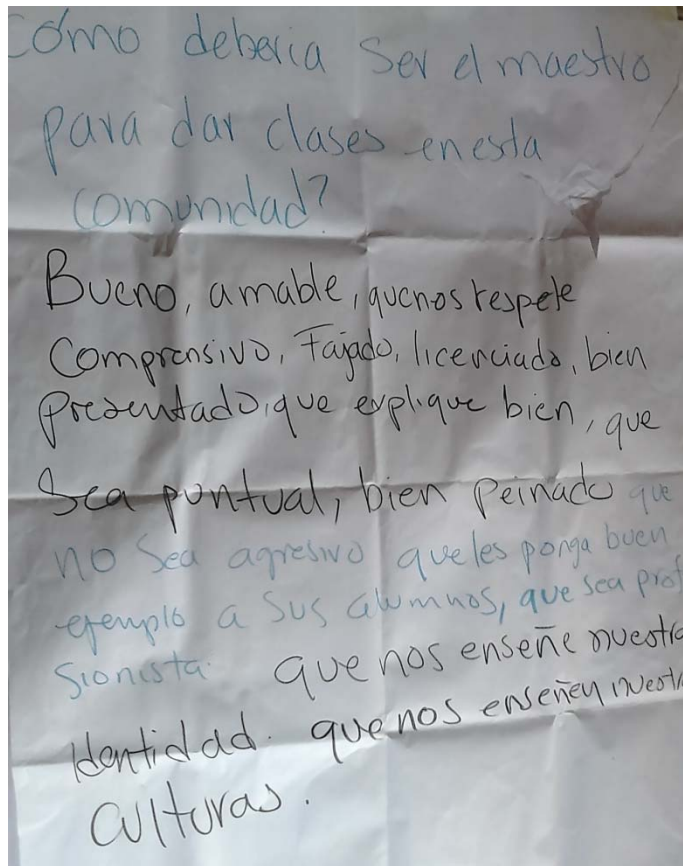 Cómo deberia Ser el maestro
para dar clases en esta
comunidad?
Bueno, amable, que nos respete
Comprensivo, Fajado, licenciado, bien
Presentado, que explique bien, que
Sea puntual, bien Peinado que
no Sea agresivo que les ponga buen
ejemplo a Sus alumnos, que sea prof
Sionista. que nos enseñe nuestra
Identidad. que nos enseñen nuestra
Culturas.